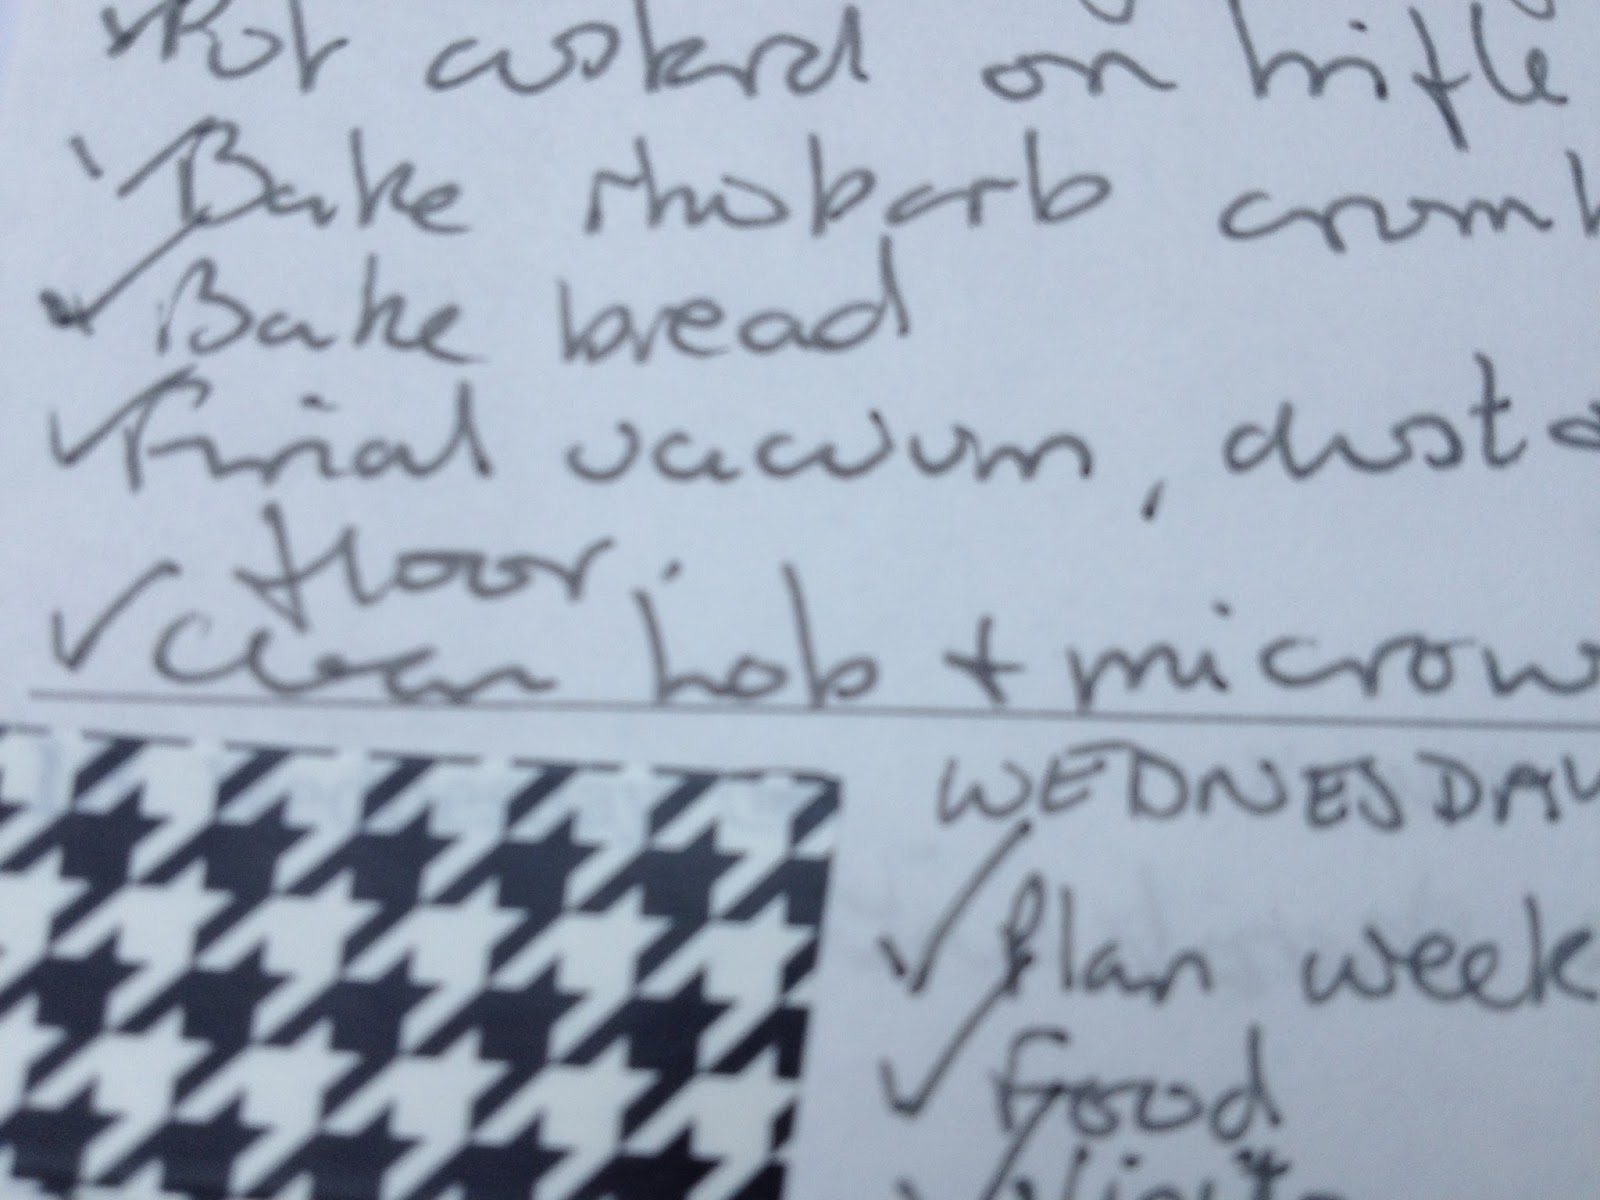 ✓Put custard on trifle
✓Bake rhubarb crumb
✓Bake bread
✓Final vacuum, dust &
floor.
✓Clean hob + microw
WEDNESDAY
✓Plan week
✓Food
✓Visit